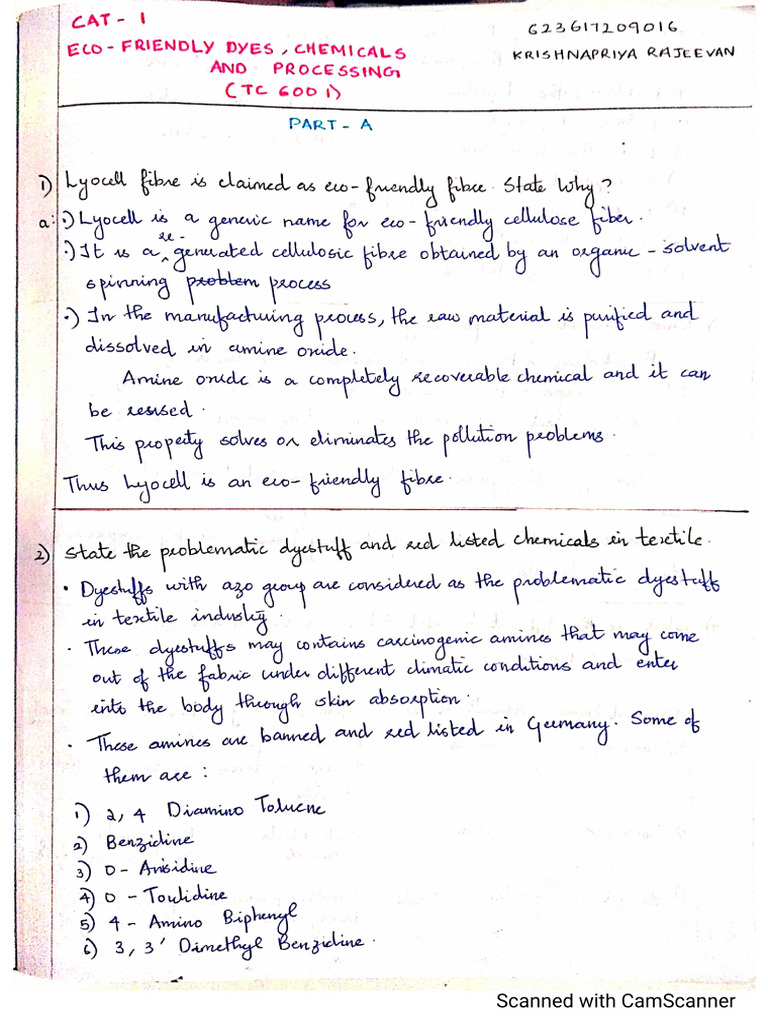 CAT - 1
623617209016
ECO - FRIENDLY DYES, CHEMICALS
KRISHNAPRIYA RAJEEVAN
AND PROCESSING
(TC 6001)
PART - A
1) Lyocell fibre is claimed as eco - friendly fibre. State Why?
a: •) Lyocell is a generic name for eco - friendly cellulose fiber.
•) It is a re-generated cellulosic fibre obtained by an organic - solvent
spinning problem process
•) In the manufacturing process, the raw material is purified and
dissolved in amine oxide.
Amine oxide is a completely recoverable chemical and it can
be resused.
This property solves or eliminates the pollution problems.
Thus Lyocell is an eco - friendly fibre.
2) State the problematic dyestuff and red listed chemicals in textile.
• Dyestuffs with azo group are considered as the problematic dyestuff
in textile industry.
• These dyestuffs may contains carcinogenic amines that may come
out of the fabric under different climatic conditions and enter
into the body through skin absorption.
• These amines are banned and red listed in Germany. Some of
them are :
1) 2, 4 Diamino Toluene
2) Benzidine
3) O - Anisidine
4) O - Toulidine
5) 4 - Amino Biphenyl
6) 3, 3' Dimethyl Benzidine.
Scanned with CamScanner